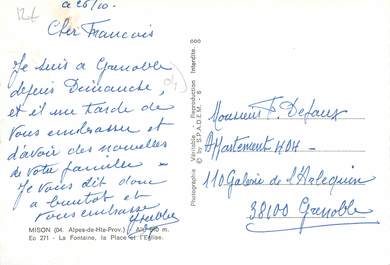 a 26/10.
Cher Francois
Je suis a Grenoble
depuis Dimanche,
et il me tarde de
vous embrasser et
d'avoir des nouvelles
de votre famille -
Je vous dit donc
a bientot et
vous embrasse
MISON (04. Alpes-de-Hte-Prov.) Alt. m.
Eo 271 - La Fontaine, la Place et l'Eglise.
Photographie Véritable - Reproduction Interdite.
© by S.P.A.D.E.M. - 6
Monsieur F. Defaux
Appartement 404 -
110 Galerie de l'Arlequin
38100 Grenoble